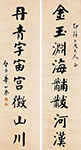 金玉淵海黼黻河漢
丹青宇宙宮徵山川